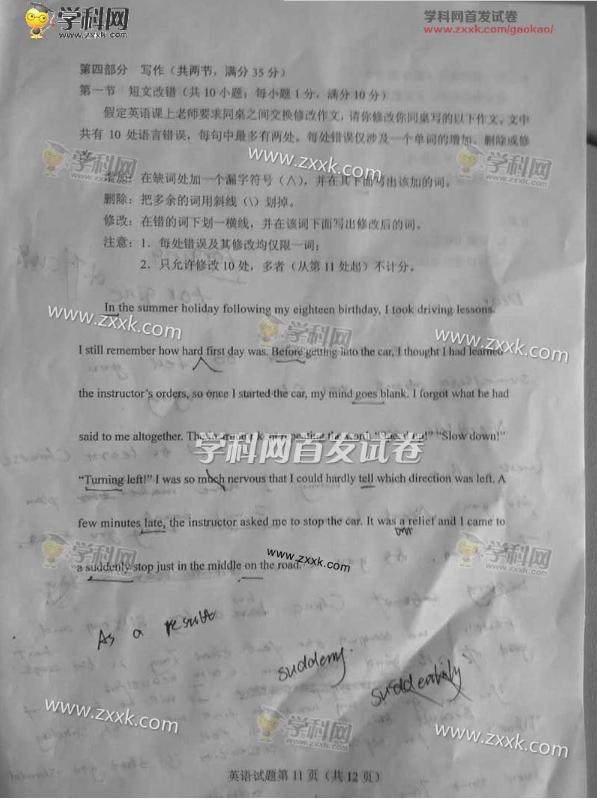 学科网
www.zxxk.com
学科网首发试卷
www.zxxk.com/gaokao/
第四部分 写作（共两节，满分 35 分）
第一节 短文改错（共 10 小题；每小题 1 分，满分 10 分）
假定英语课上老师要求同桌之间交换修改作文，请你修改你同桌写的以下作文。文中
共有 10 处语言错误，每句中最多有两处。每处错误仅涉及一个单词的增加、删除或修
增加：在缺词处加一个漏字符号（∧），并在其下面写出该加的词。
删除：把多余的词用斜线（\）划掉。
修改：在错的词下划一横线，并在该词下面写出修改后的词。
注意：1．每处错误及其修改均仅限一词；
2．只允许修改 10 处，多者（从第 11 处起）不计分。
In the summer holiday following my eighteen birthday, I took driving lessons.
I still remember how hard first day was. Before getting into the car, I thought I had learned
the instructor's orders, so once I started the car, my mind goes blank. I forgot what he had
said to me altogether. The "Slow down!"
"Turning left!" I was so much nervous that I could hardly tell which direction was left. A
few minutes late, the instructor asked me to stop the car. It was a relief and I came to
a suddenly stop just in the middle on the road.
As a result
suddeny.
英语试题第 11 页（共 12 页）
学科网
www.zxxk.com
学科网
www.zxxk.com
学科网
www.zxxk.com
学科网首发试卷
www.zxxk.com
学科网
www.zxxk.com
www.zxxk.com
学科网
www.zxxk.com
学科网
www.zxxk.com